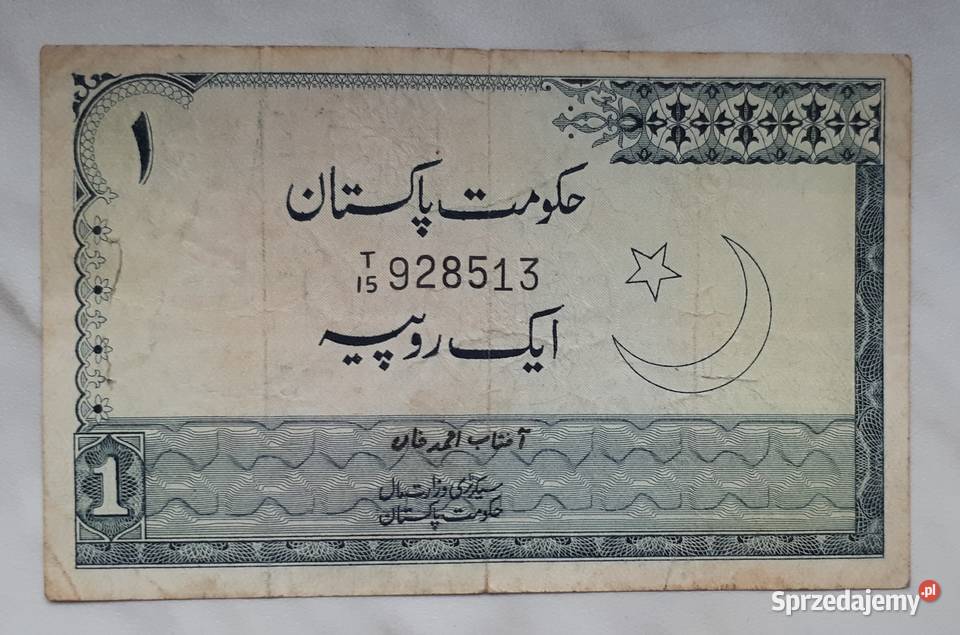 ۱
حکومت پاکستان
T/15 928513
ایک روپیہ
آفتاب احمد خان
سیکرٹری وزارت مال
حکومت پاکستان
1
Sprzedajemy.pl